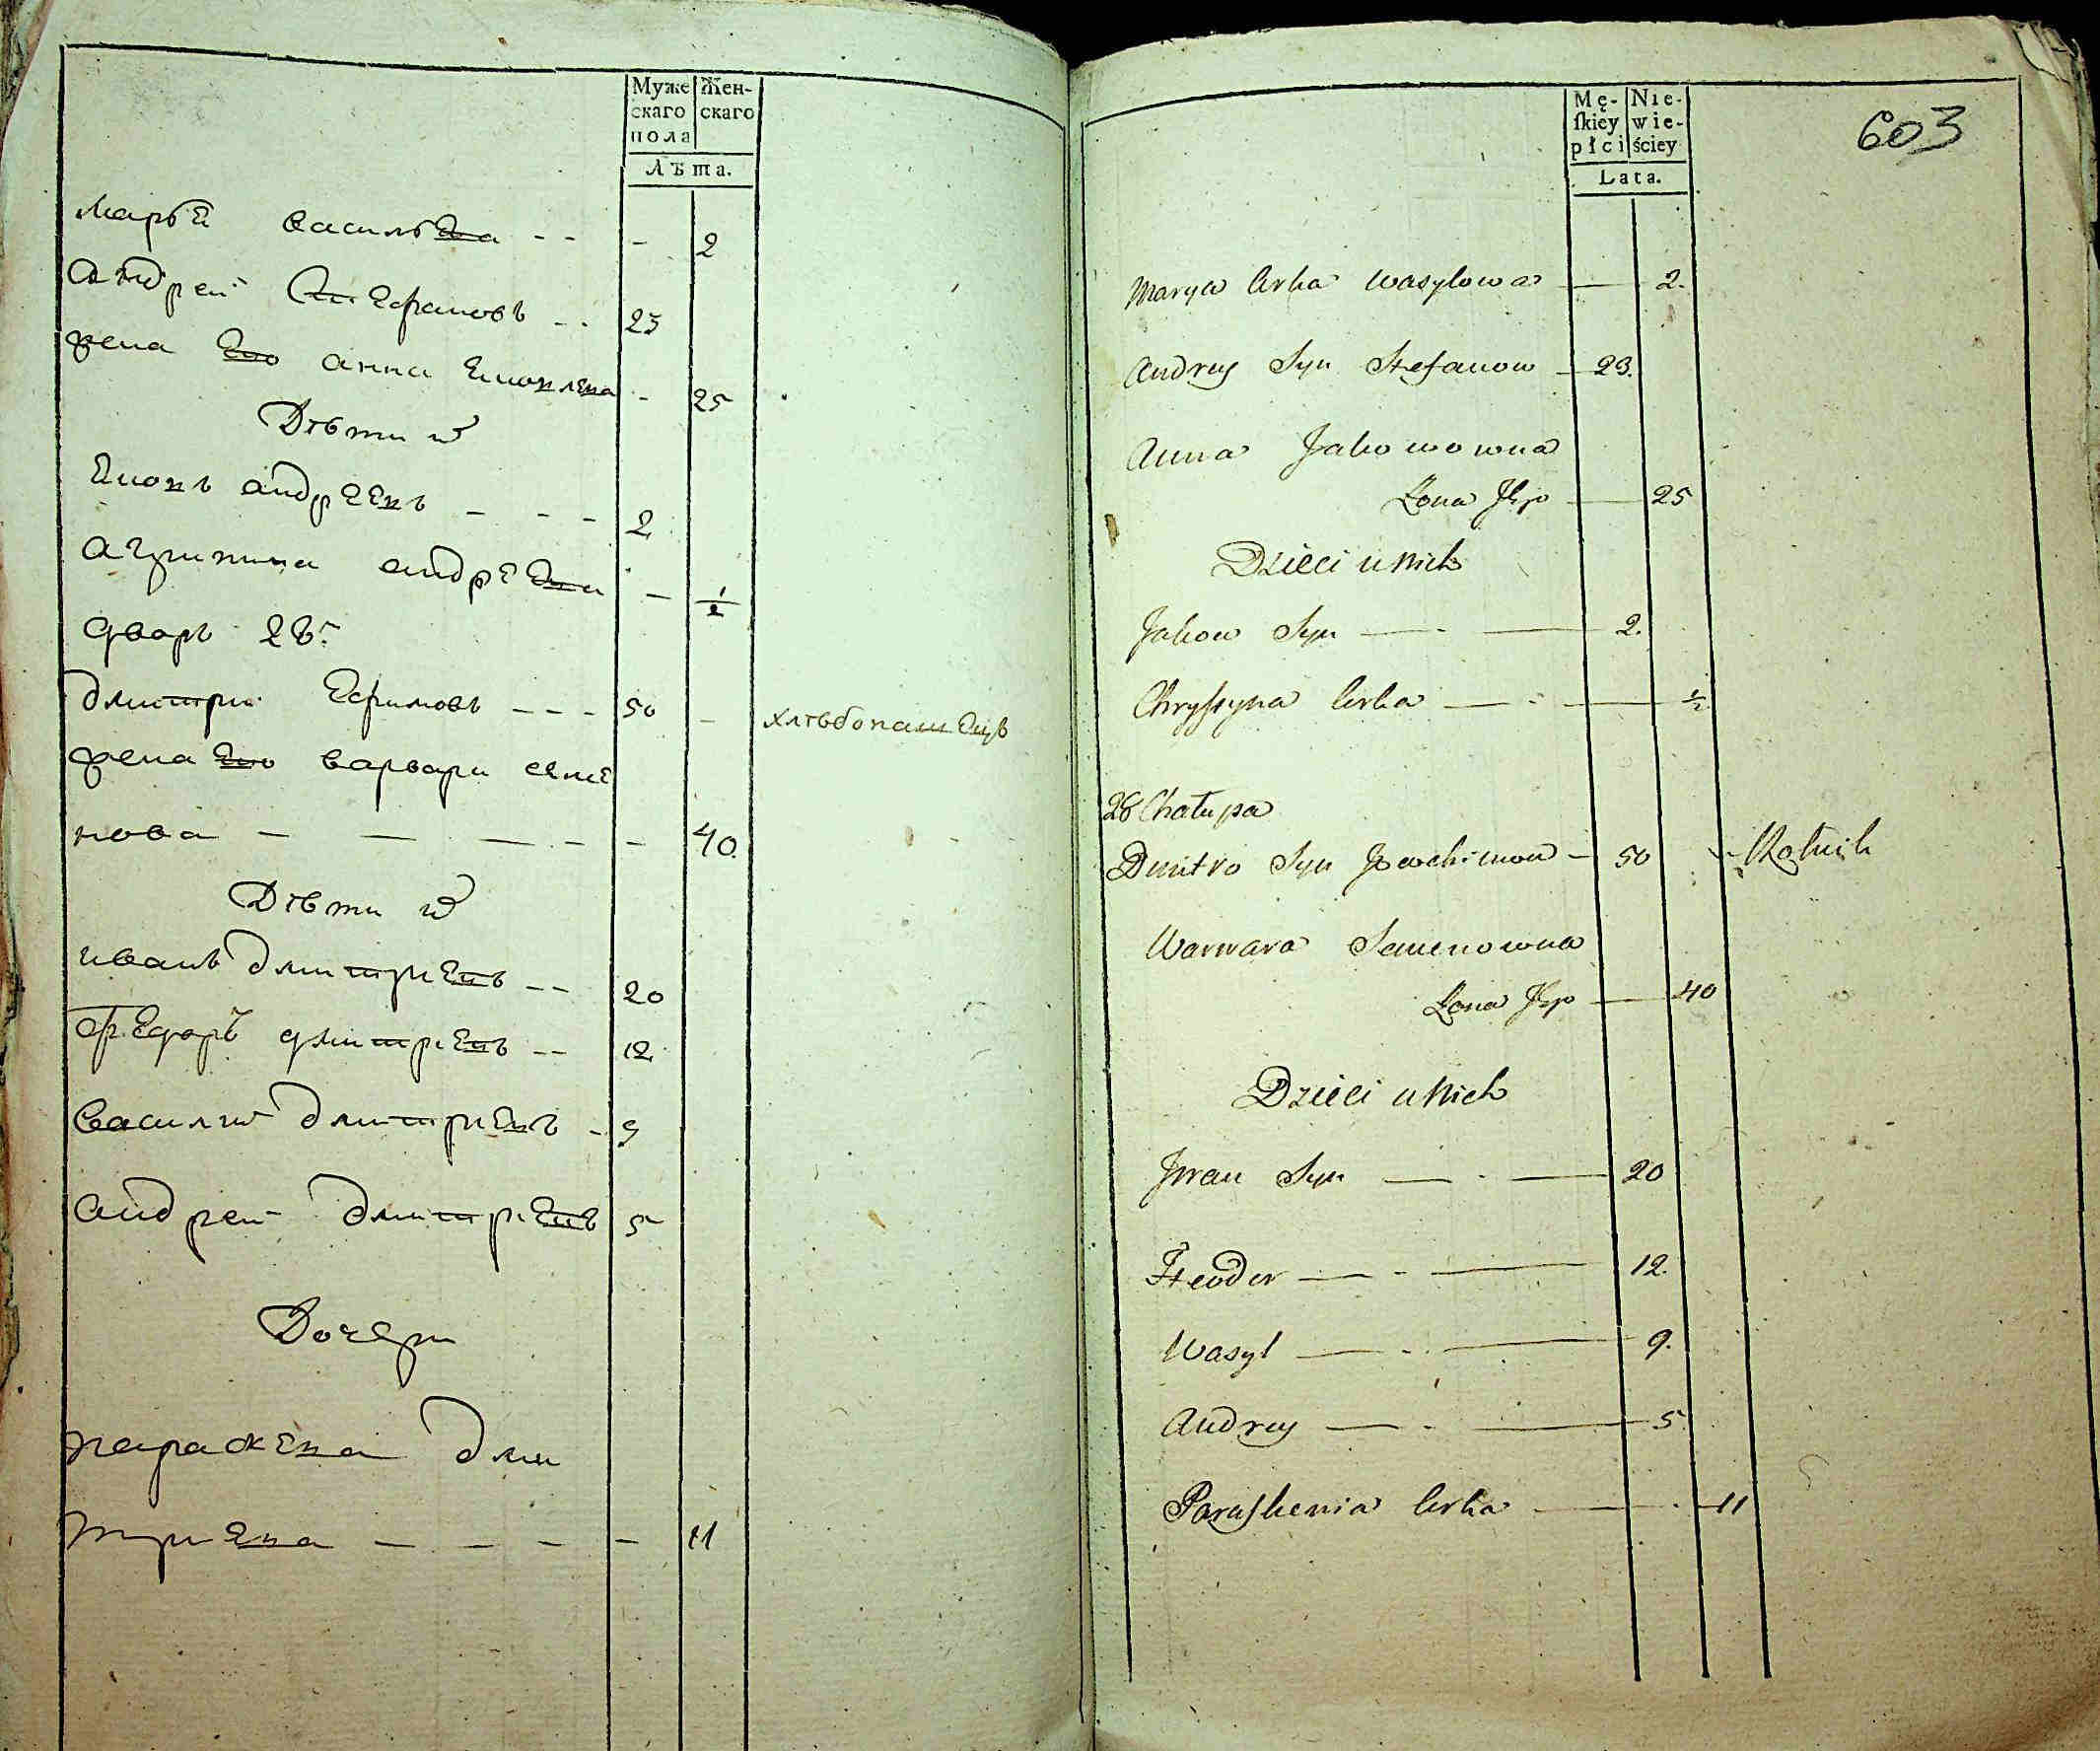 Муже Жен-
скаго скаго
пола
Лѣта.
марья василева - - - 2
андрей Стефановъ - - 23
жена Его анна Яковлева - 25
Дѣти их
Яковъ андреевъ - - - 2
агрипина андреева - 1/2
дворъ 28:
дмитрий Ефимовъ - - - 50 - хлѣбопашецъ
жена Его варвара семе
нова - - - - - 40.
Дѣти их
иванъ дмитриевъ - - 20
Федоръ дмитриевъ - - 12
Василий дмитриевъ - 9
андрей дмитриевъ 5
Дочери
параскева дми
триева - - - - 11
Mę- Nie-
ſkiey wie-
płci ściey
Lata.
603
Marya Crka Wasylowa — 2.
Andrey Syn Stefanow — 23.
Anna Jakowowna
Żona Jego — 25
Dzieci u Nich
Jakow Syn — - — 2.
Chryſtyna Crka — - — 1/2
28 Chałupa
Dmitro Syn Joachimow — 50 Rolnik
Warwara Semenowna
Żona Jego — 40
Dzieci u Nich
Jwan Syn — - — 20
Fteodor — - — 12.
Wasyl — - — 9.
Andrey — - — 5.
Paraſkewia Crka — - 11